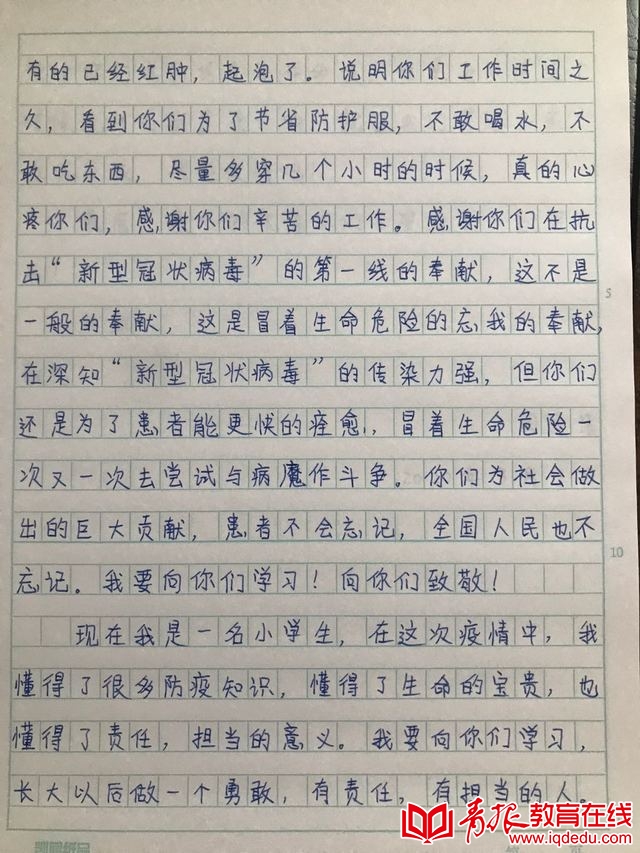 有的已经红肿，起泡了。说明你们工作时间之
久，看到你们为了节省防护服，不敢喝水，不
敢吃东西，尽量多穿几个小时的时候，真的心
疼你们，感谢你们辛苦的工作。感谢你们在抗
击“新型冠状病毒”的第一线的奉献，这不是
一般的奉献，这是冒着生命危险的忘我的奉献，
5
在深知“新型冠状病毒”的传染力强，但你们
还是为了患者能更快的痊愈，冒着生命危险一
次又一次去尝试与病魔作斗争。你们为社会做
出的巨大贡献，患者不会忘记，全国人民也不
10
忘记。我要向你们学习！向你们致敬！
现在我是一名小学生，在这次疫情中，我
懂得了很多防疫知识，懂得了生命的宝贵，也
懂得了责任，担当的意义。我要向你们学习，
长大以后做一个勇敢，有责任，有担当的人。
青报教育在线
www.iqdedu.com